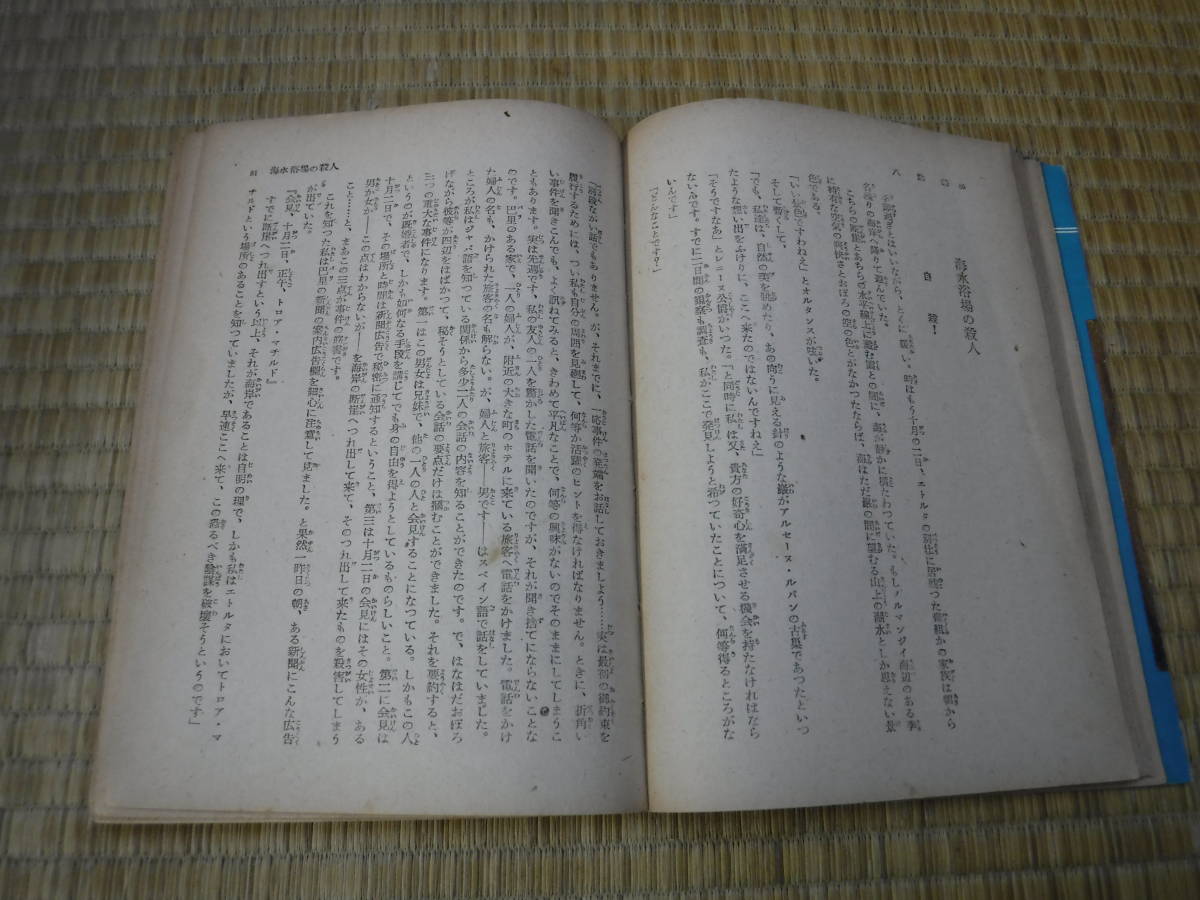 海水浴場の殺人
自殺!
色である。
「いい景色ですわねえ」とオルタンスが呟いた。
そして暫くして、
「でも、私達は、自然の美を眺めたり、あの向うに見える針のような巌がアルセーヌ・ルパンの古巣であつたといつ
たような想い出をふけりに、ここへ来たのではないんですねえ」
「そうですなあ」とレニーヌ公爵がいつた。「と同時に私は又、貴方の好奇心を満足させる機会を持たなければなら
ないんです。すでに二日間の観察も調査も、私がここで発見しようと希つていたことについて、何等得るところがな
いんです」
「どんなことです?」
「別段なが い話でもありません。が、それまでに、一応事件の発端をお話しておきましよう……実は最初の御約束を
履行するためには、つい私も自分の周囲を見廻して、何等か活躍のヒントを得なければなりません。ときに、折角い
い事件を聞きこんでも、よく訊ねてみると、きわめて平凡なことで、何等の興味がないのでそのままにしてしまうこ
ともあります。実は先週です、私の友人の一人を驚かした電話を聞いたのですが、それが聞き捨てにならないことな
のです。巴里のある家で、一人の婦人が、附近の大きな町のホテルに来ている旅客へ電話をかけました。電話をかけ
た婦人の名も、かけられた旅客の名も解らない。が、婦人と旅客――男です――はスペイン語で話をしていました。
ところが私はジャバ語を知つている関係から多少二人の会話の内容を知ることができたのです。で、はなはだおぼろ
げながら彼等が四辺をはばかつて、秘そうとしている会話の要点だけは摑むことができました。それを要約すると、
三つの重大な事件になります。第一はこの男女は兄妹で、他の一人の人と会見することになつている。しかもこの人
というのが既婚者で、しかも如何なる手段を講じてでも身の自由を得ようとしているものらしいこと。第二に会見は
十月二日で、その場所と時間は新聞広告で秘密に通知するということ、第三は十月二日の会見にはその女性が、ある
男か女か――この点はわからないが――を海岸の断崖へつれ出して来て、そのつれ出して来たものを殺害してしまう
こと……と、まあこの三点が事件の筋書です。
これを知つた私は巴里の新聞の案内広告欄を細心に注意して見ました。と果然一昨日の朝、ある新聞にこんな広告
が出ていた。
『会見、十月二日、正午、トロア・マチルド』
すでに断崖へつれ出すという以上、それが海岸であることは自明の理で、しかも私はエトルタにおいてトロア・マ
チルドという場所のあることを知つていましたが、早速ここへ来て、この恐るべき陰謀を破壊そうというのです」
81 海水浴場の殺人